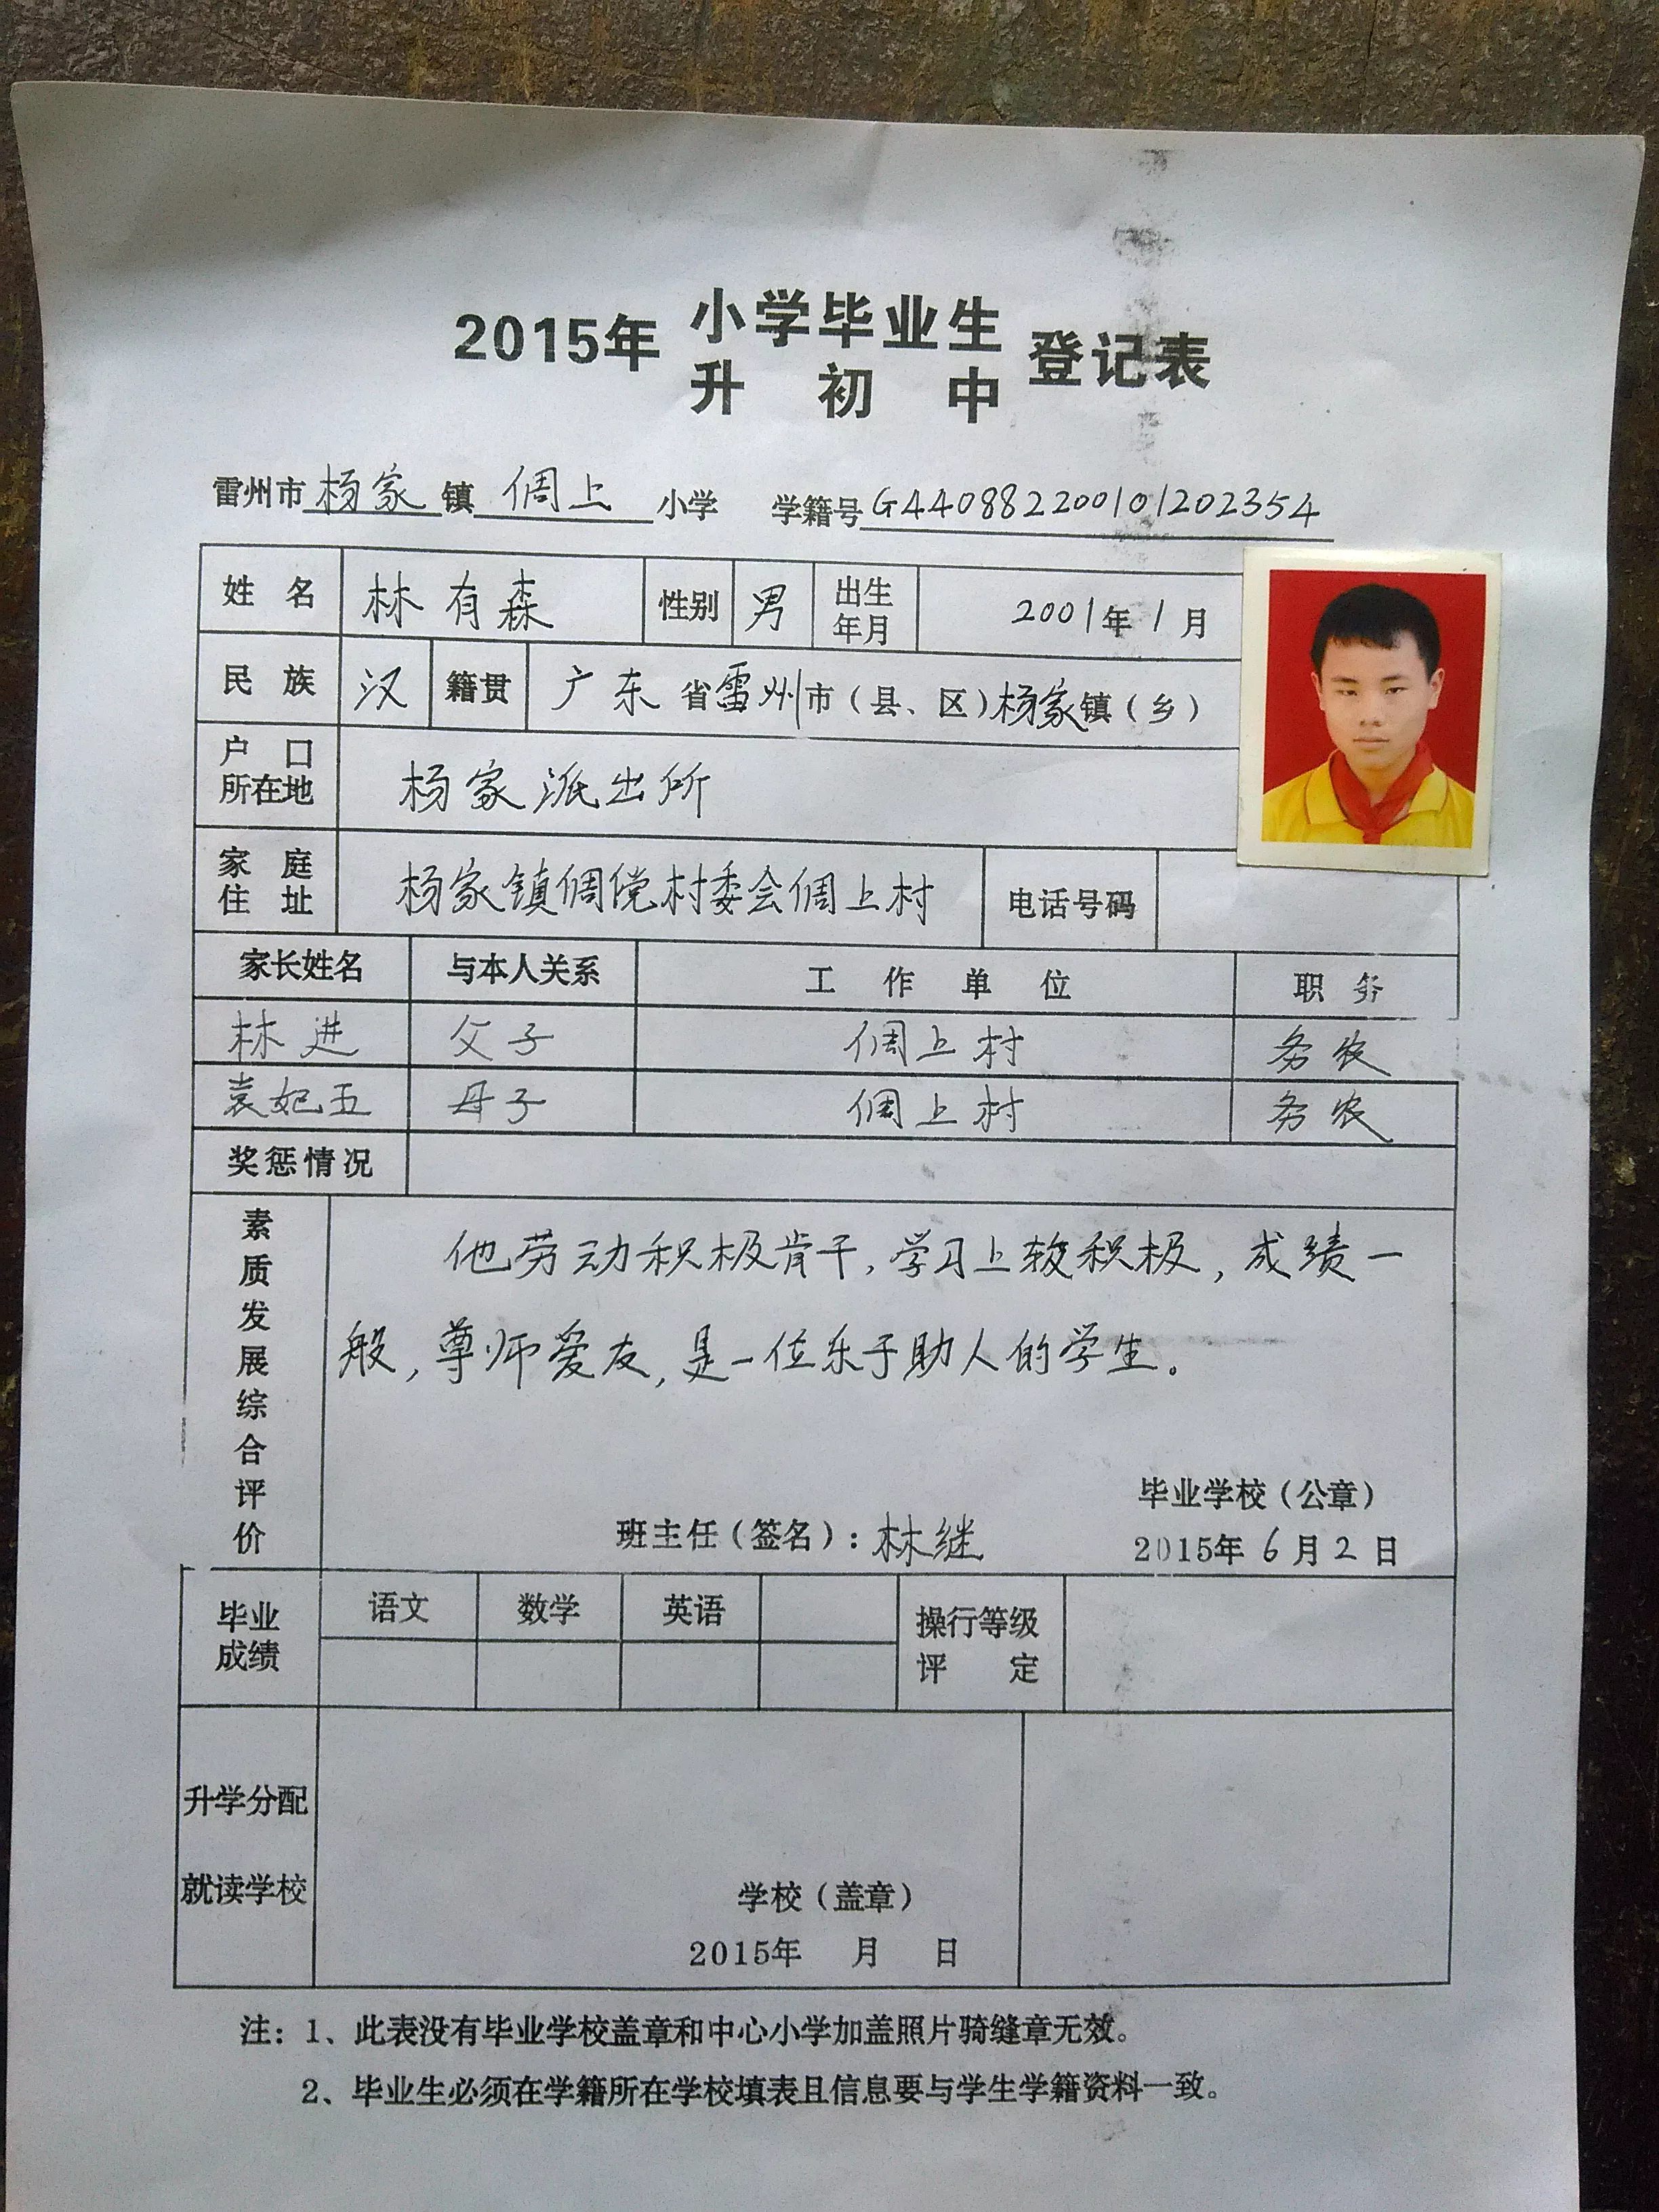 2015年 小学毕业生 登记表
升初中
雷州市杨家镇倜上小学 学籍号G440882200101202354
姓名 林有森 性别 男 出生年月 2001年1月
民族 汉 籍贯 广东省雷州市(县、区)杨家镇(乡)
户口所在地 杨家派出所
家庭住址 杨家镇倜傥村委会倜上村 电话号码
家长姓名 与本人关系 工作单位 职务
林进 父子 倜上村 务农
袁妃五 母子 倜上村 务农
奖惩情况
素质发展综合评价
他劳动积极肯干,学习上较积极,成绩一
般,尊师爱友,是一位乐于助人的学生。
毕业学校(公章)
班主任(签名):林继 2015年6月2日
毕业成绩 语文 数学 英语 操行等级评定
升学分配
就读学校
学校(盖章)
2015年 月 日
注:1、此表没有毕业学校盖章和中心小学加盖照片骑缝章无效。
2、毕业生必须在学籍所在学校填表且信息要与学生学籍资料一致。